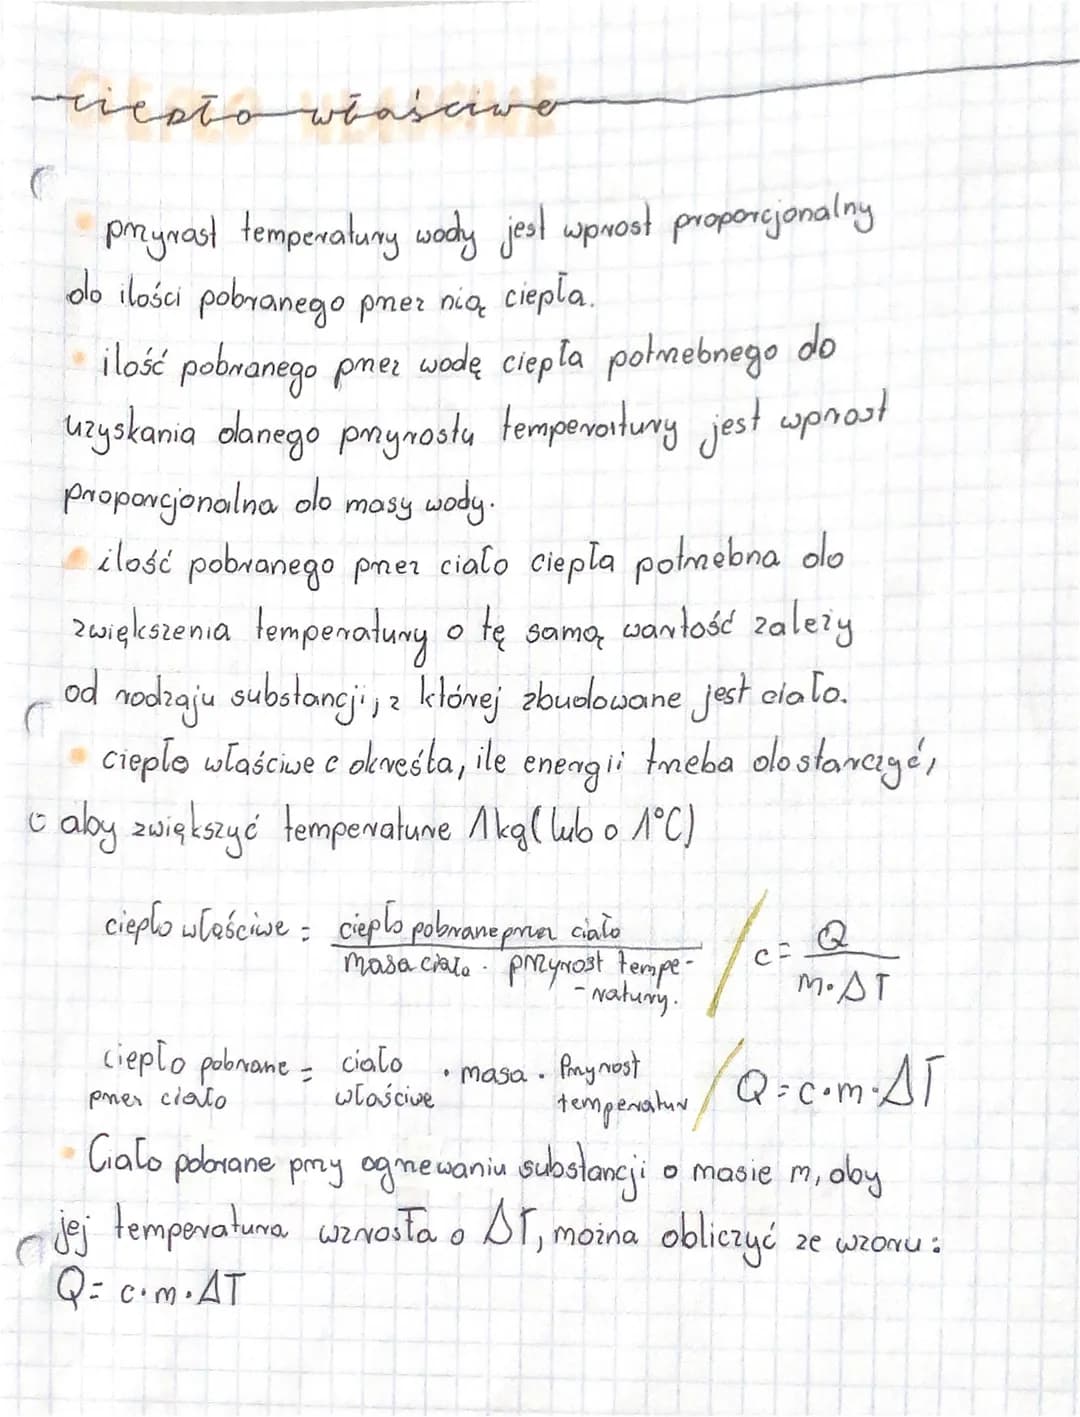 ciepło właściwe
• przyrost temperatury wody jest wprost proporcjonalny
do ilości pobranego przez nią ciepła.
• ilość pobranego przez wodę ciepła potrzebnego do
uzyskania danego przyrostu temperatury jest wprost
proporcjonalna do masy wody.
• ilość pobranego przez ciało ciepła potrzebna do
zwiększenia temperatury o tę samą wartość zależy
od rodzaju substancji, z której zbudowane jest ciało.
• ciepło właściwe c określa, ile energii trzeba dostarczyć,
aby zwiększyć temperature 1kg (lub o 1°C)
ciepło właściwe = ciepło pobrane przez ciało / c = Q
masa ciała · przyrost tempe- m·ΔT
-ratury.
ciepło pobrane = ciało · masa · Przyrost / Q = c·m·ΔT
przez ciało właściwe temperatur
• Ciało pobrane przy ogrzewaniu substancji o masie m, aby
jej temperatura wzrosła o ΔT, można obliczyć ze wzoru:
Q = c·m·ΔT